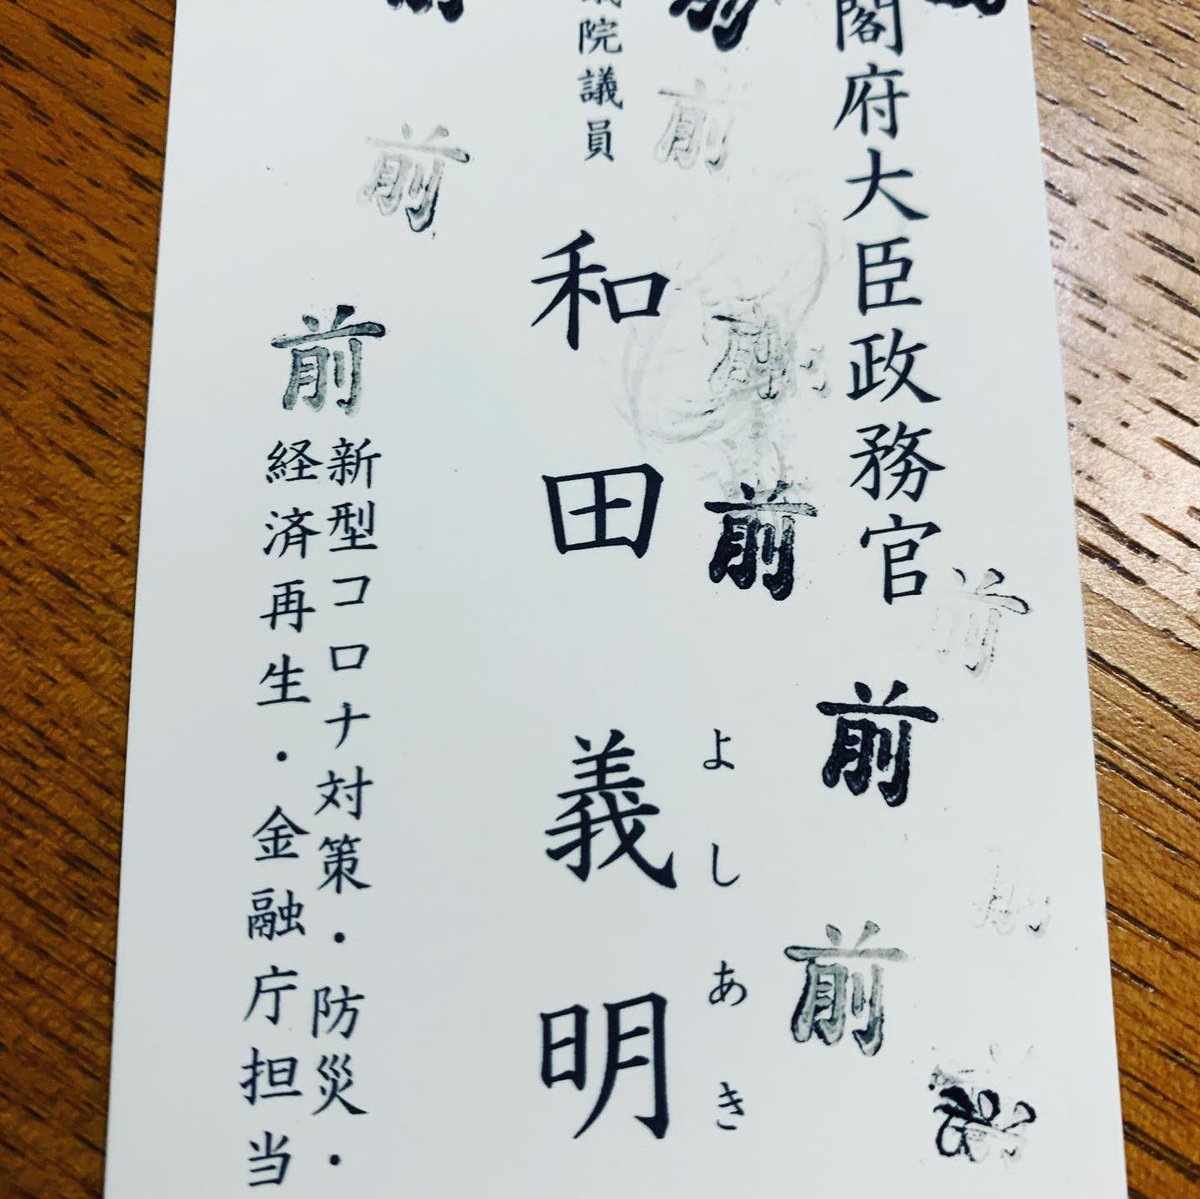 閣府大臣政務官
院議員
和田義明
よしあき
新型コロナ対策・防災・
経済再生・金融庁担当
前
前
前
前
前
前
前